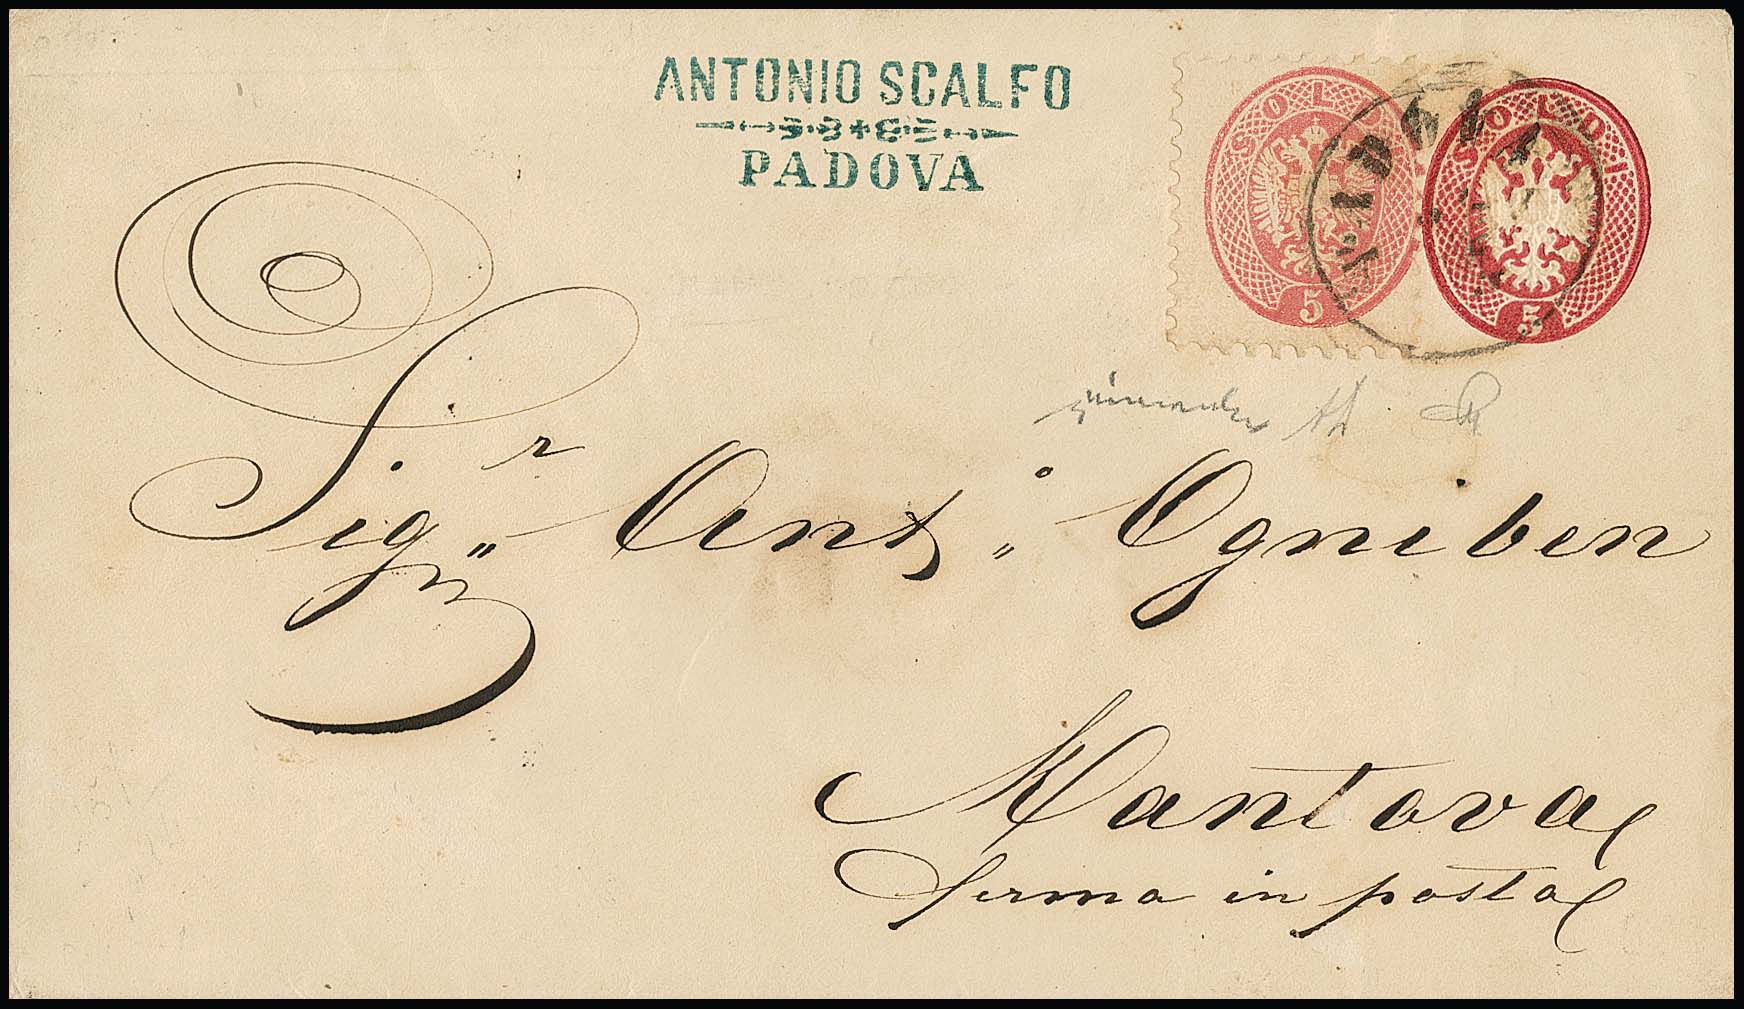 ANTONIO SCALFO
PADOVA
SOLDI
5
SOLDI
5
PADOVA
Sig.r Ant.o Ogniben
Mantova
ferma in posta